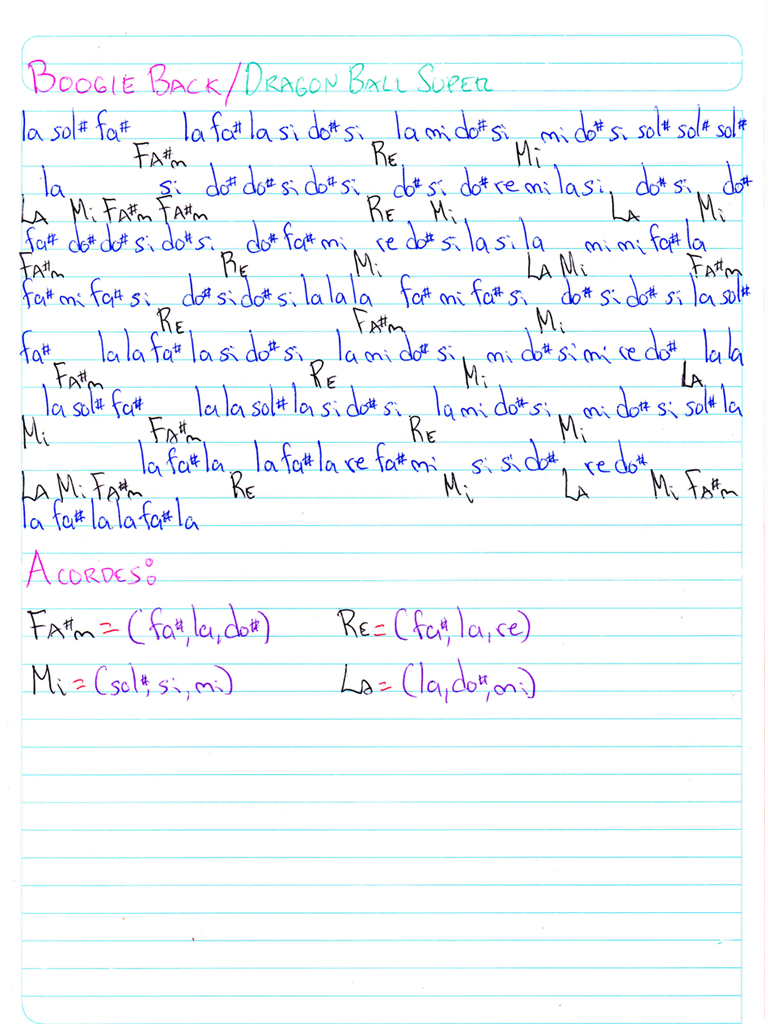 BOOGIE BACK/DRAGON BALL SUPER
la sol# fa# la fa# la si do# si la mi do# si mi do# si sol# sol# sol#
FA#m RE Mi
la si do# do# si do# si do# si do# re mi la si do# si do#
LA Mi FA#m FA#m RE Mi LA Mi
fa# do# do# si do# si do# fa# mi re do# si la si la mi mi fa# la
FA#m RE Mi LA Mi FA#m
fa# mi fa# si do# si do# si la la la fa# mi fa# si do# si do# si la sol#
RE FA#m Mi
fa# la la fa# la si do# si la mi do# si mi do# si mi re do# la la
FA#m RE Mi LA
la sol# fa# la la sol# la si do# si la mi do# si mi do# si sol# la
Mi FA#m RE Mi
la fa# la la fa# la re fa# mi si si do# re do#
LA Mi FA#m RE Mi LA Mi FA#m
la fa# la la fa# la
ACORDES:
FA#m = (fa#, la, do#) RE = (fa#, la, re)
Mi = (sol#, si, mi) LA = (la, do#, mi)